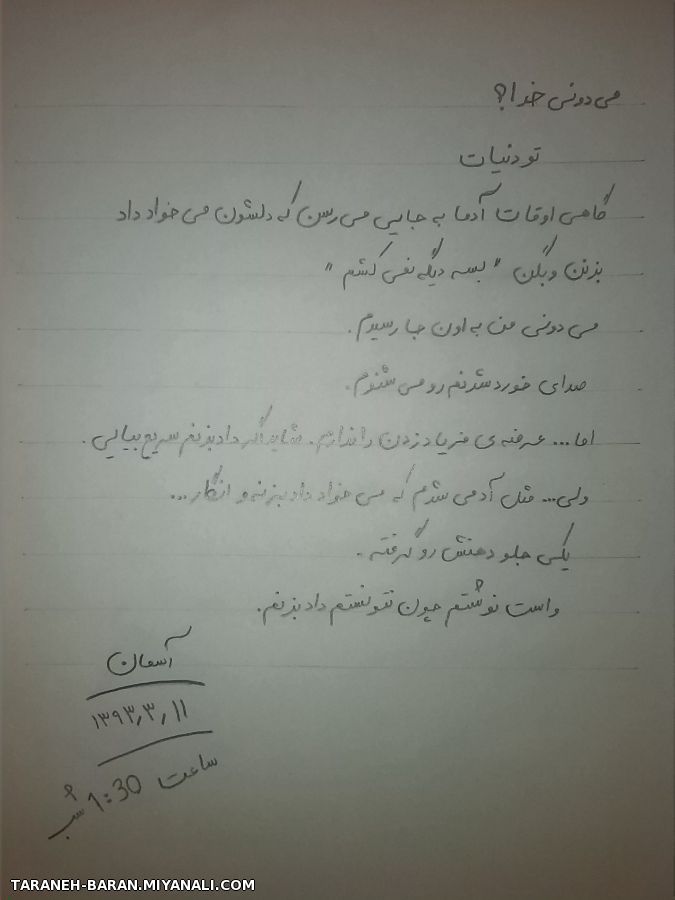 می دونی خدا؟
تو دنیات
گاهی اوقات آدما به جایی می رسن که دلشون می خواد داد
بزنن و بگن "بسه دیگه نمی کشم"
می دونی من به اون جا رسیدم.
صدای خورد شدنم رو می شنوم.
اما... عرضه ی فریاد زدن رو ندارم. شاید اگر داد بزنم سریع بیایی.
ولی... مثل آدمی شدم که می خواد داد بزنه و انگار...
یکی جلو دهنش رو گرفته.
واست نوشتم چون نتونستم داد بزنم.
آسمان
۱۳۹۳٫۳٫۱۱
ساعت 1:30 شب
TARANEH-BARAN.MIYANALI.COM